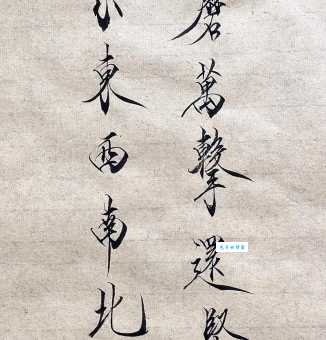 磨萬擊還堅
尔東西南北